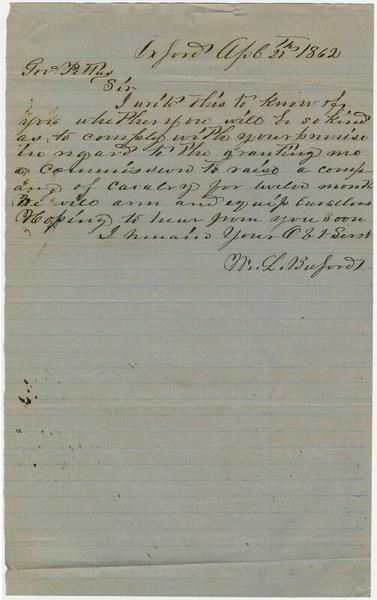 Oxford Apl 21th 1862
Gov Pettus
Sir
I write this to know of
you whether you will be so kind
as to comply with your promise
in regard to the granting me
a commission to raise a comp-
any of Cavalry for twelve months
We will arm and equip ourselves
Hoping to hear from you soon
I remain Your Obt Servt
W. L. Buford